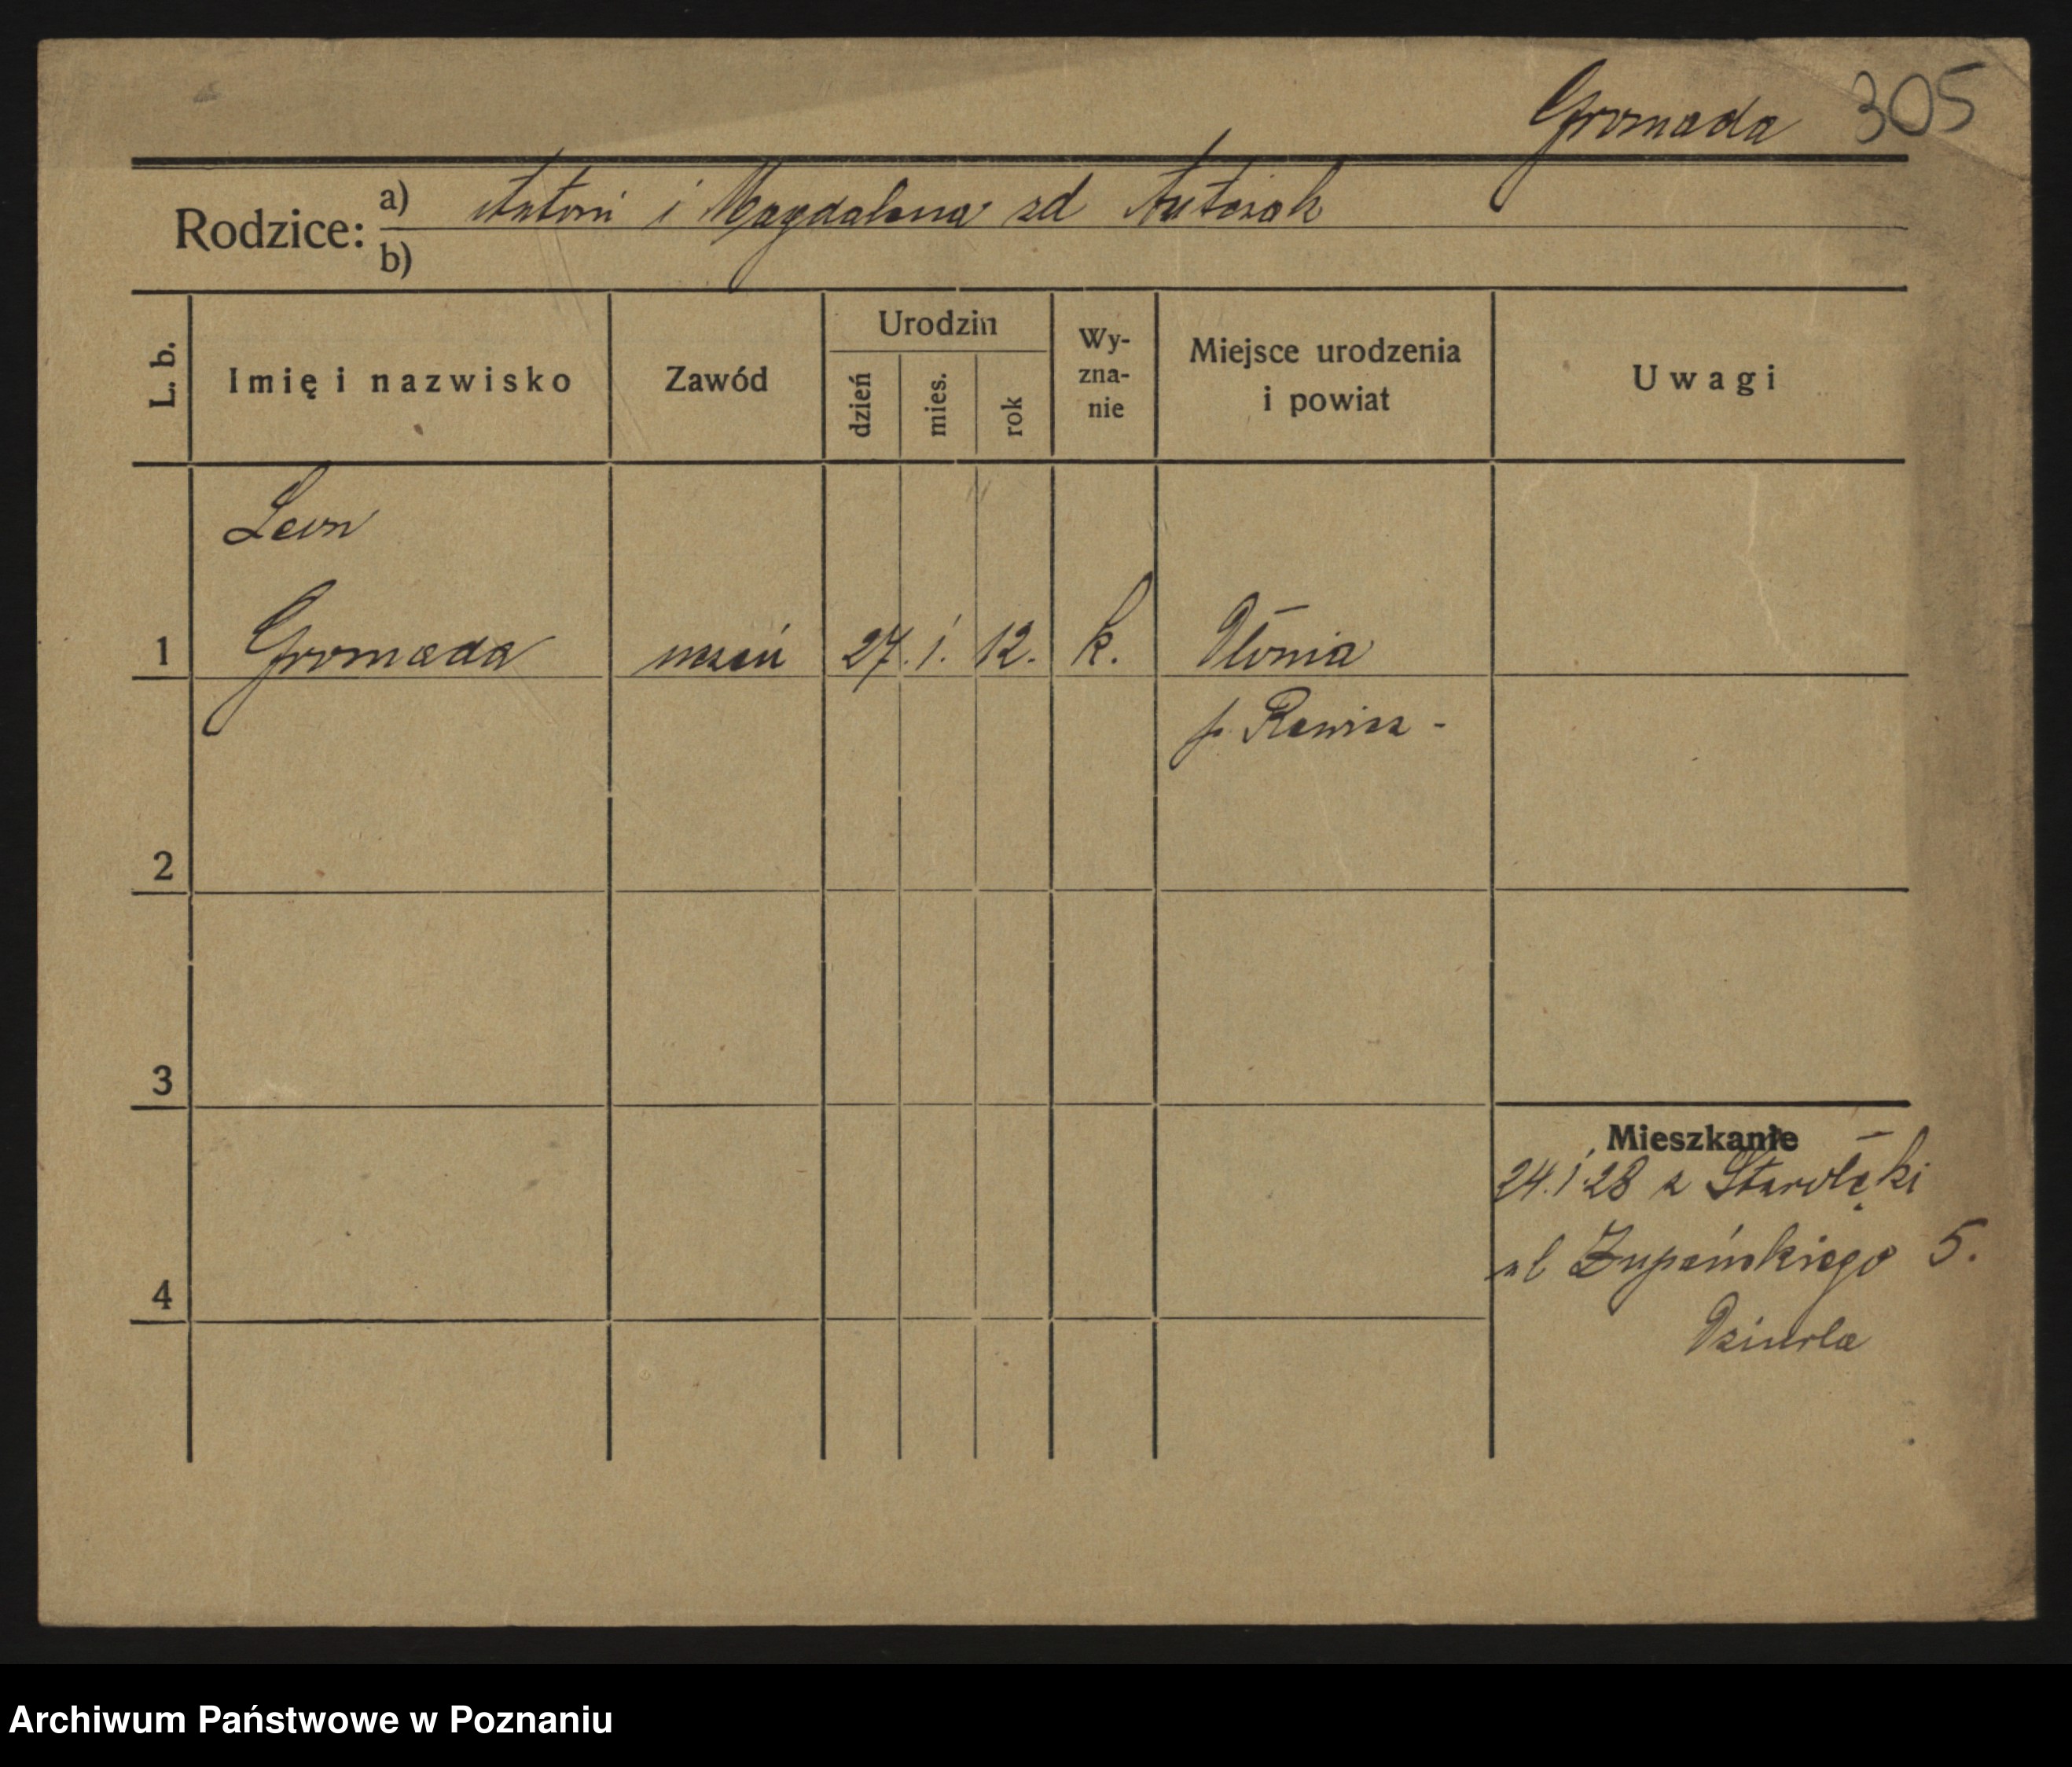 Gromada 305
Rodzice: a) Antoni i Magdalena zd Antosiak
b)
L. b. Imię i nazwisko Zawód Urodzin dzień mies. rok Wy-zna-nie Miejsce urodzenia i powiat Uwagi
Leon
1 Gromada uczeń 27. 1. 12. k. Dłonia
p. Rawicz -
2
3
Mieszkanie
24.1.28 z Starołęki
ul Żupańskiego 5.
4
Dziurla
Archiwum Państwowe w Poznaniu